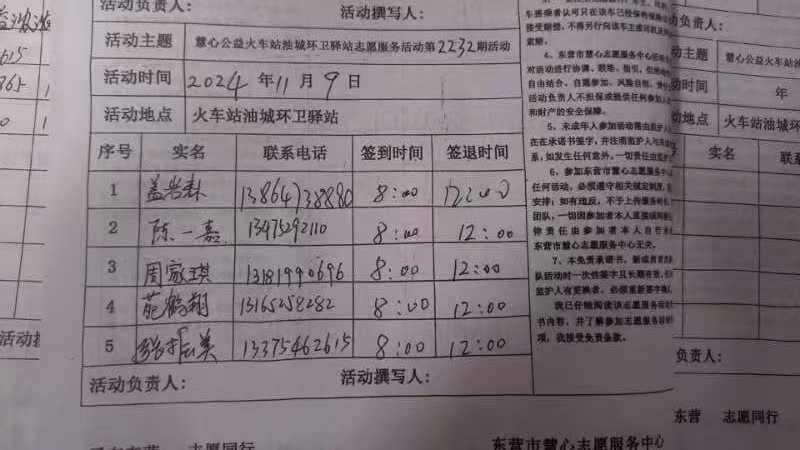 活动负责人： 活动撰写人：
活动主题 慧心公益火车站油城环卫驿站志愿服务活动第2232期活动
活动时间 2024年11月9日
活动地点 火车站油城环卫驿站
序号 实名 联系电话 签到时间 签退时间
1 盖岩森 13864738880 8:00 12:00
2 陈一嘉 13475292110 8:00 12:00
3 周家琪 13181990696 8:00 12:00
4 鹤翔 13165258282 8:00 12:00
5 美 13375462615 8:00 12:00
活动负责人： 活动撰写人：
志愿同行
东营市慧心志愿服务中心
接受赔偿，不得另行向该车主
索赔。
4、东营市慧心志愿服务中心
对活动进行协调、联络、指引，
自由结合、自愿参加、风险自担、
活动负责人不担保或提供任何参加人
和财产的安全保障。
5、未成年人参加活动需由监护人
在在承诺书签字，并注明监护人与
系，如发生任何意外，一切责任由监护
6、参加东营市慧心志愿服务中心
任何活动，必须遵守相关规定制度，
安排；如有违反，不予上传服务时长，
团队，一切因参加者本人直接或间接
律责任由参加者本人自行承
东营市慧心志愿服务中心无关。
7、本免责承诺书，新成员首次
队活动时一次性签字且长期有效，
监护人有更换者，必须重新签字确
我已仔细阅读该志愿服务
书内容，并了解参加志愿服务
项，我接受免责条款。
负责人：
主题 慧心公益火车站油
时间 年
地点 火车站油城环
实名 联系
负责人：
东营 志愿同行